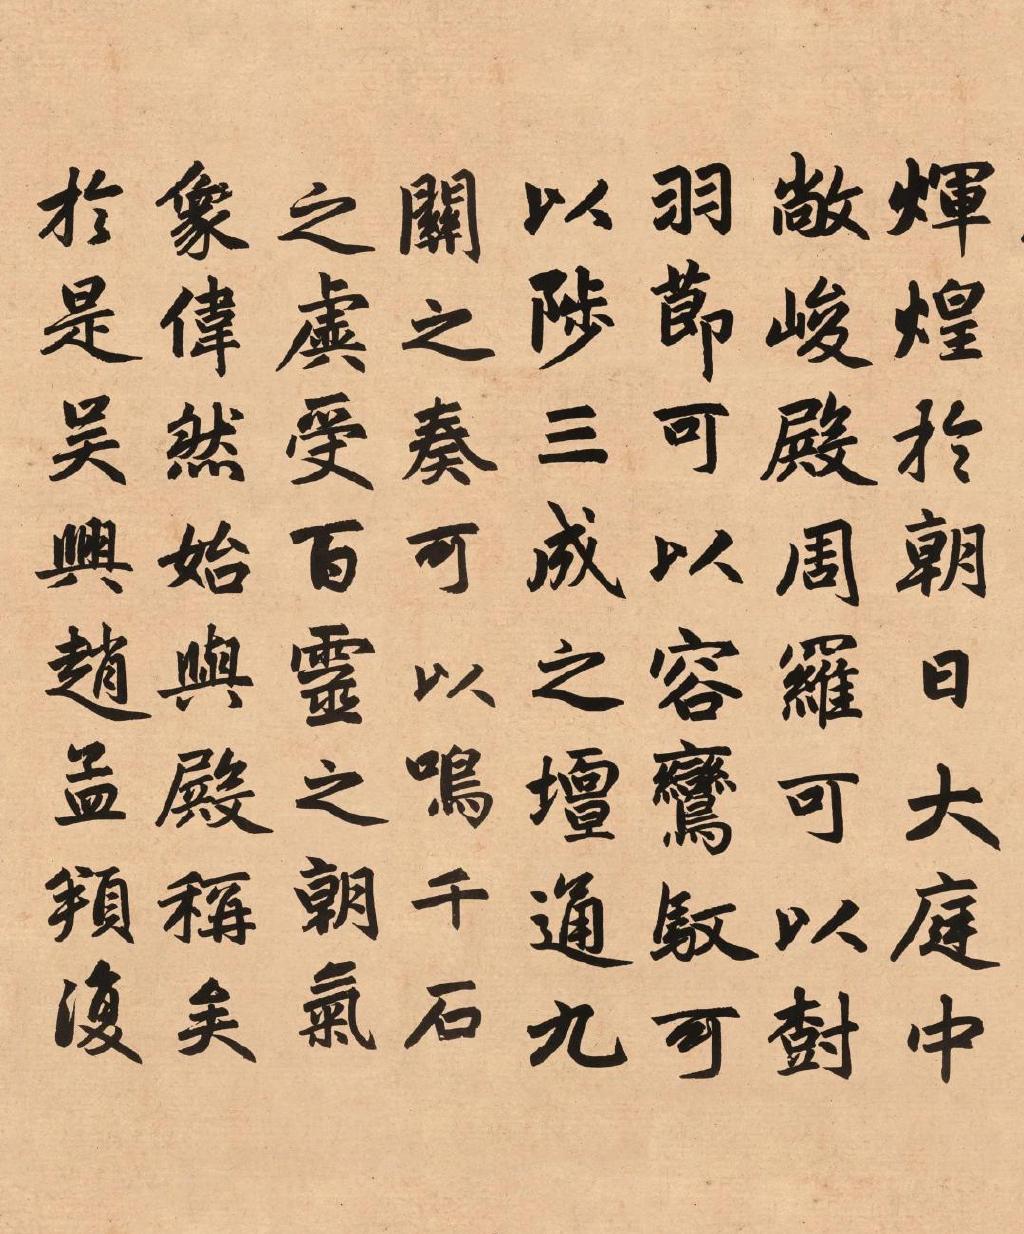 煇煌於朝日大庭中
敞峻殿周羅可以樹
羽節可以容鸞馭可
以陟三成之壇通九
關之奏可以鳴千石
之虡受百靈之朝氣
象偉然始與殿稱矣
於是吴興趙孟頫復